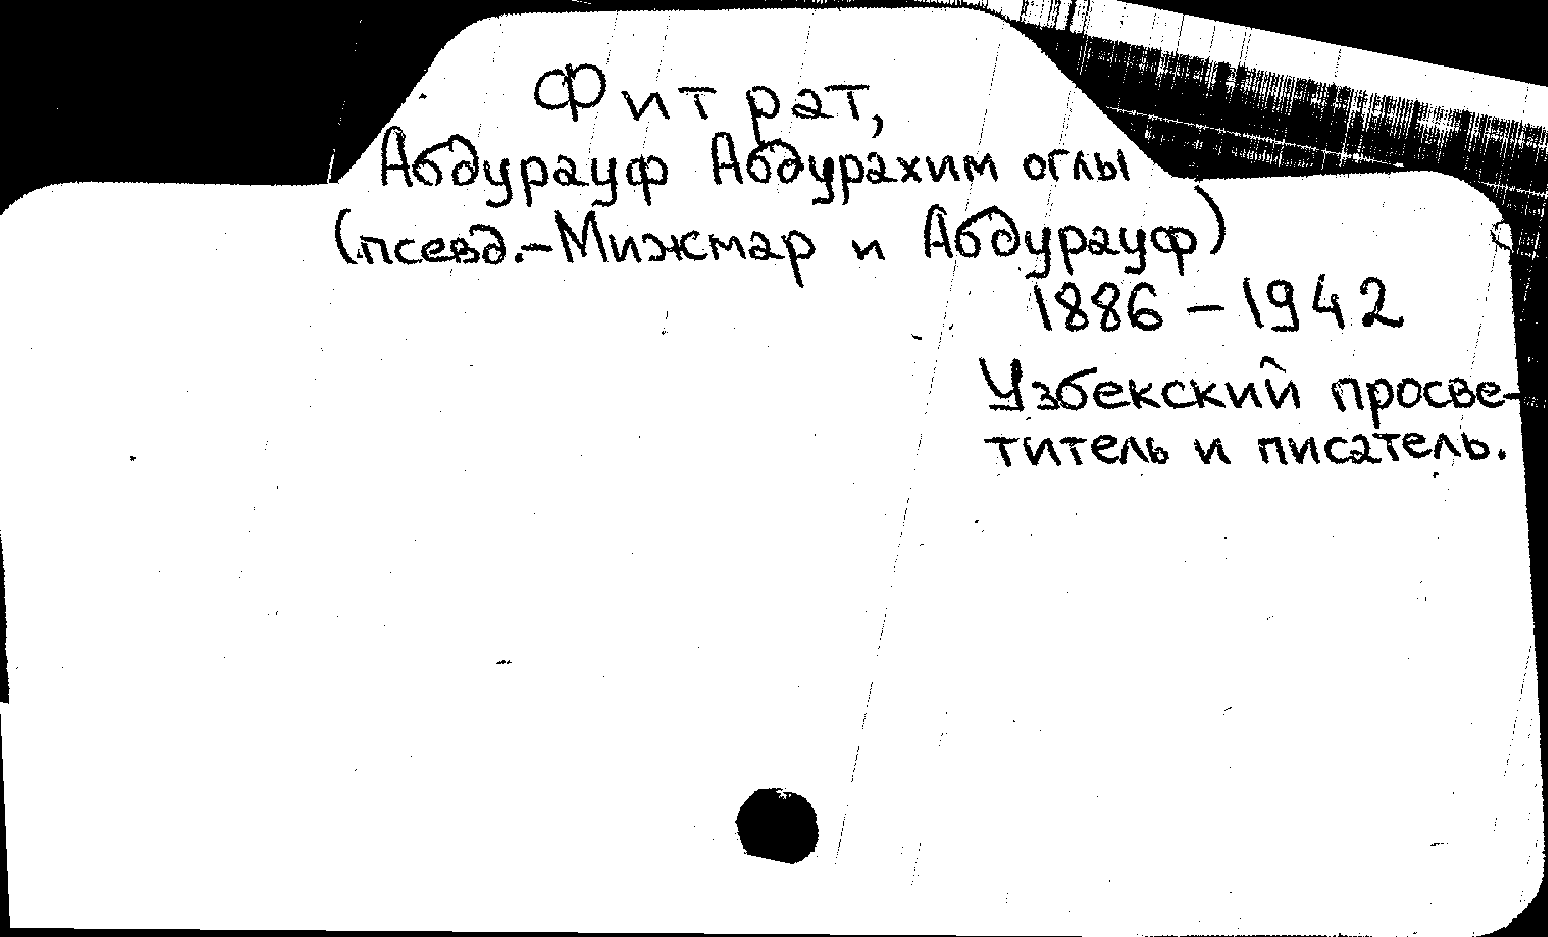 Фитрат,
Абдурауф Абдурахим оглы
(псевд.-Мижмар и Абдурауф)
1886-1942
Узбекский просве-
титель и писатель.